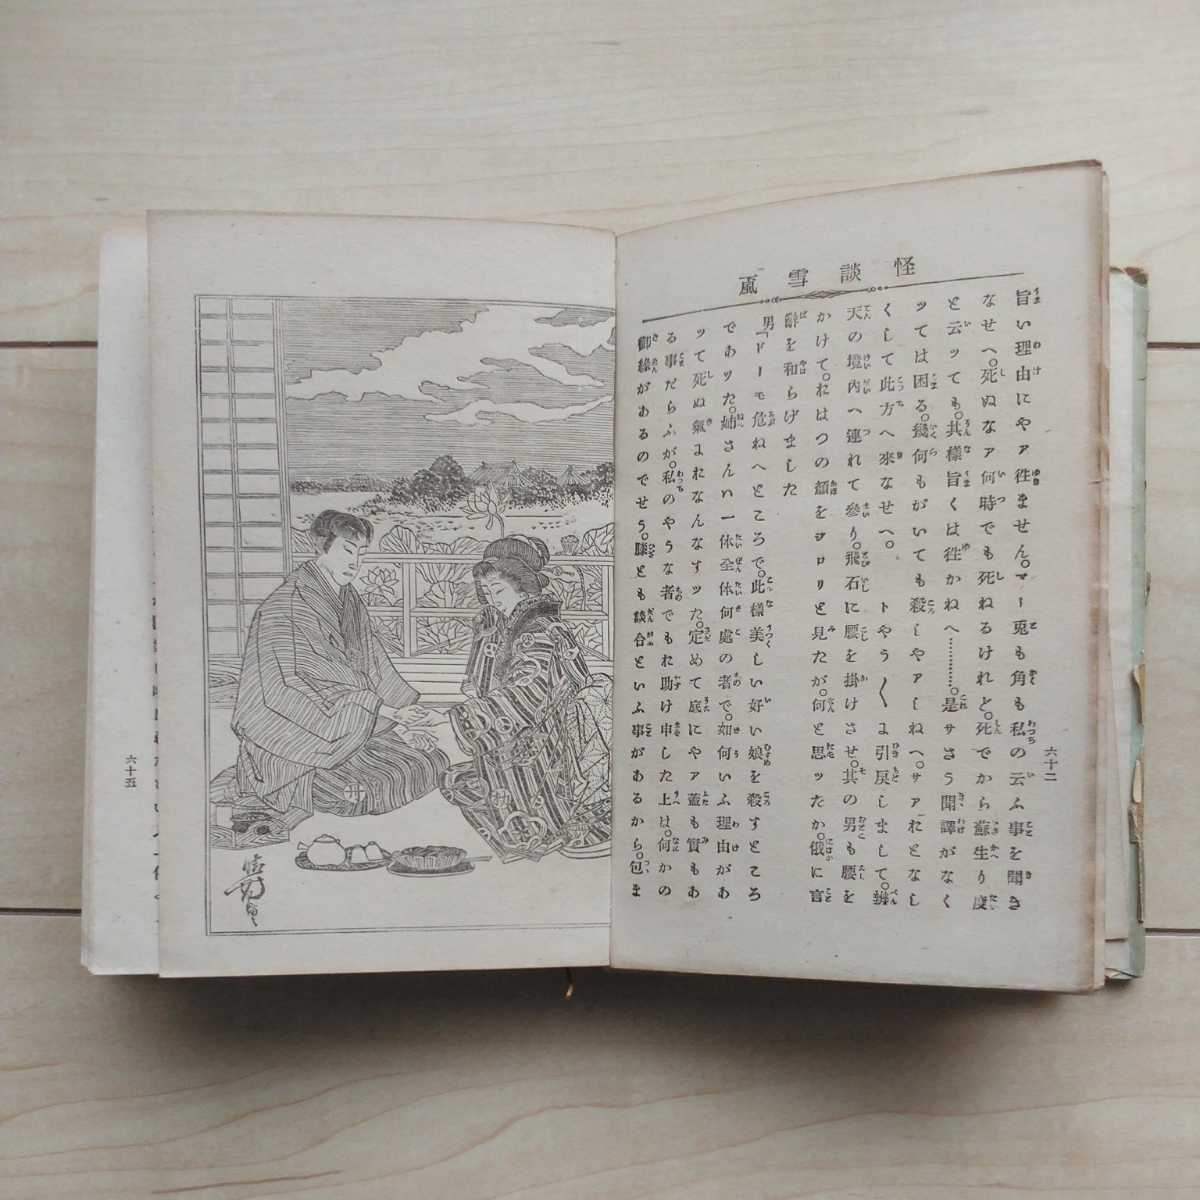 怪談雪颪
六十二
旨い理由にやァ徃ません。マー兎も角も私の云ふ事を聞き
なせへ。死ぬなァ何時でも死ねるけれど。死でから蘇生り度
と云ッても。其樣旨くは徃かねへ…………。是サさう聞譯がなく
ッては困る。幾何もがいても殺しやァしねへ。サァおとなし
くして此方へ來なせへ。トやう〳〵ま引戻しまして。辨
天の境内へ連れて參り。飛石に腰を掛けさせ。其の男も腰を
かけて。おはつの顔をヂロリと見たが。何と思ッたか。俄に言
辭を和らげました
男「ドーモ危ねへところで。此樣美しい好い娘を殺すところ
であッた。姉さんい一体全体何處の者で。如何いふ理由があ
ッて死ぬ氣まおなんなすッた。定めて底にやァ蓋も實もあ
る事だらふが。私のやうな者でもお助け申した上は。何かの
御縁があるのでせう。膝とも談合といふ事があるから。包ま
六十五